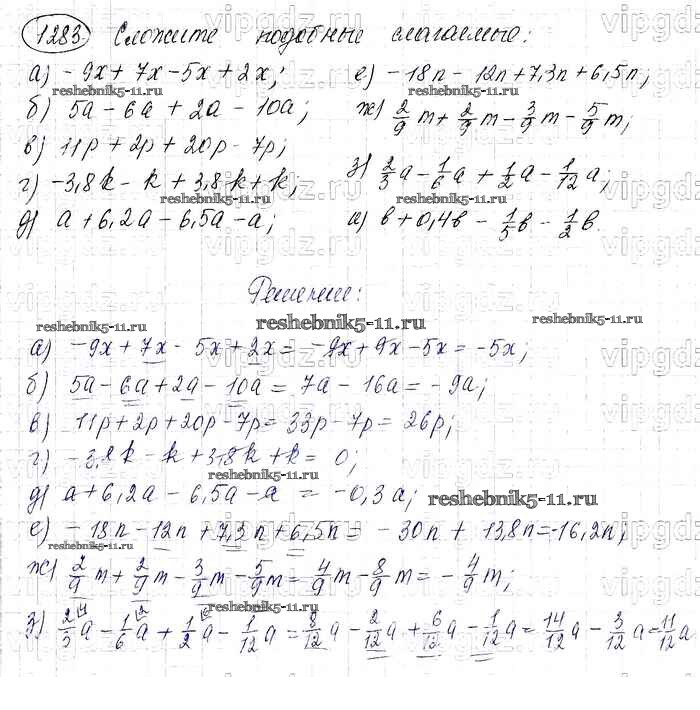 1283. Сложите подобные слагаемые:
а) -9x + 7x - 5x + 2x;
б) 5a - 6a + 2a - 10a;
в) 11p + 2p + 20p - 7p;
г) -3,8k - k + 3,8k + k;
д) a + 6,2a - 6,5a - a;
е) -18n - 12n + 7,3n + 6,5n;
ж) 2/9 m + 2/9 m - 3/9 m - 5/9 m;
з) 2/3 a - 1/6 a + 1/2 a - 1/12 a;
и) b + 0,4b - 1/5 b - 1/2 b.
Решение:
reshebnik5-11.ru
а) -9x + 7x - 5x + 2x = -9x + 9x - 5x = -5x;
б) 5a - 6a + 2a - 10a = 7a - 16a = -9a;
в) 11p + 2p + 20p - 7p = 33p - 7p = 26p;
г) -3,8k - k + 3,8k + k = 0;
д) a + 6,2a - 6,5a - a = -0,3a;
е) -18n - 12n + 7,3n + 6,5n = -30n + 13,8n = -16,2n;
ж) 2/9 m + 2/9 m - 3/9 m - 5/9 m = 4/9 m - 8/9 m = -4/9 m;
з) 2/3 a - 1/6 a + 1/2 a - 1/12 a = 8/12 a - 2/12 a + 6/12 a - 1/12 a = 14/12 a - 3/12 a = 11/12 a